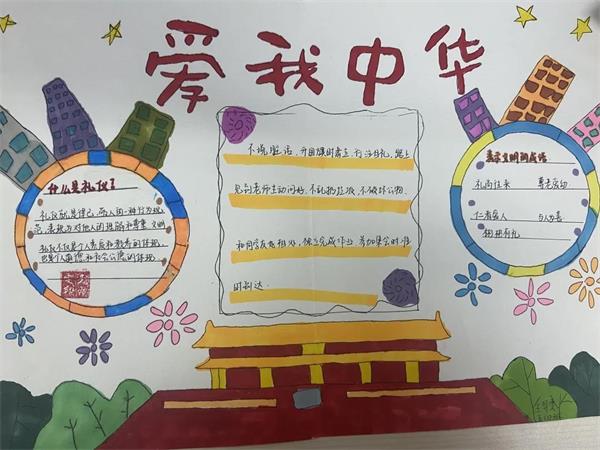 爱我中华
什么是礼仪？
礼仪就是律己、敬人的一种行为规
范，是表现为对他人的理解和尊重，文明
礼仪不仅是个人素质和教养的体现，
也是个人道德和社会公德的体现
不说脏话，升国旗时肃立、行注目礼，路上
见到老师主动问好、不乱扔垃圾、不破坏公物，
和同学友好相处，独立完成作业，参加集会时准
时到达.
表示文明的成语
礼尚往来 尊老爱幼
仁者爱人 与人为善
彬彬有礼